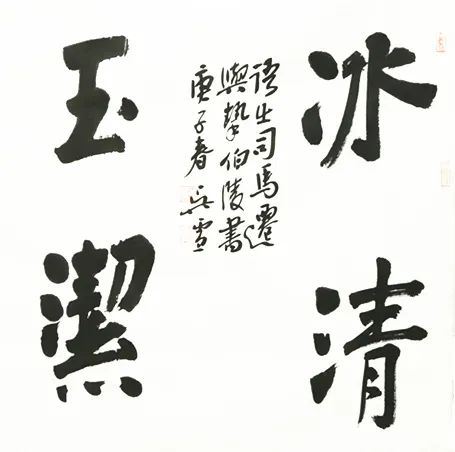 冰清
玉潔
語出司馬遷
與摯伯陵書
庚子春吳雪